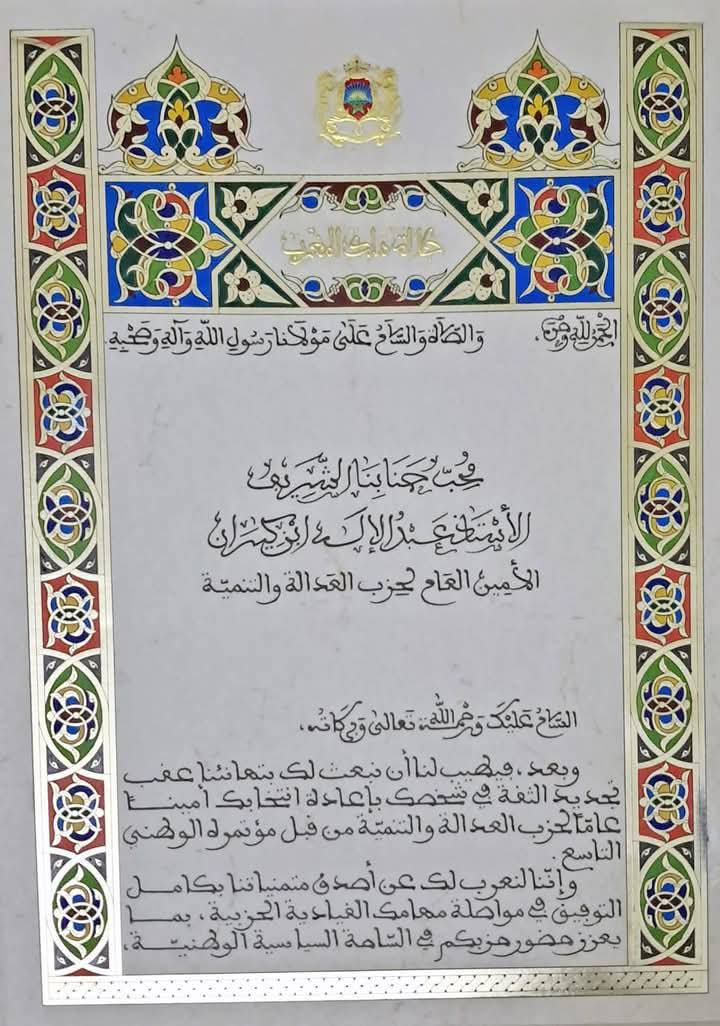 جلالة ملك المغرب
الحمد لله وحده، والصلاة والسلام على مولانا رسول الله وآله وصحبه.
محبّ جنابنا الشّريف
الأستاذ عبد الإله ابن كيران
الأمين العام لحزب العدالة والتنميّة
السلام عليك ورحمة الله تعالى وبركاته،
وبعد، فيطيب لنا أن نبعث لك بتهانئنا عقب
تجديد الثقة في شخصك بإعادة انتخابك أمينا
عامّا لحزب العدالة والتنميّة من قبل مؤتمره الوطني
التاسع.
وإنّنا لنعرب لك عن أصدق متمنياتنا بكامل
التوفيق في مواصلة مهامك القيادية الحزبية، بما
يعزز حضور حزبكم في السّاحة السياسية الوطنيّة،